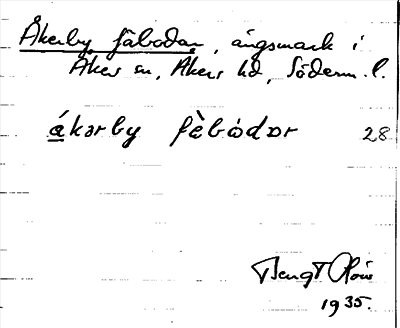 Åkerby fäbodar, ängsmark i
Åkers sn, Åkers hd, Söderm. l.
ákərby fὲbòdɒr 28
Bengt
1935.